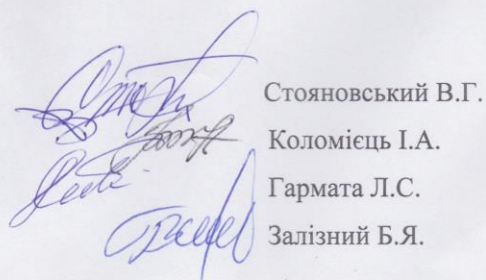 Стояновський В.Г.
Коломієць І.А.
Гармата Л.С.
Залізний Б.Я.